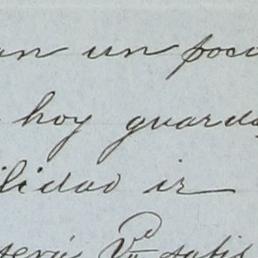 an un poco
hoy guarda
ilidad ir
será Vd satis